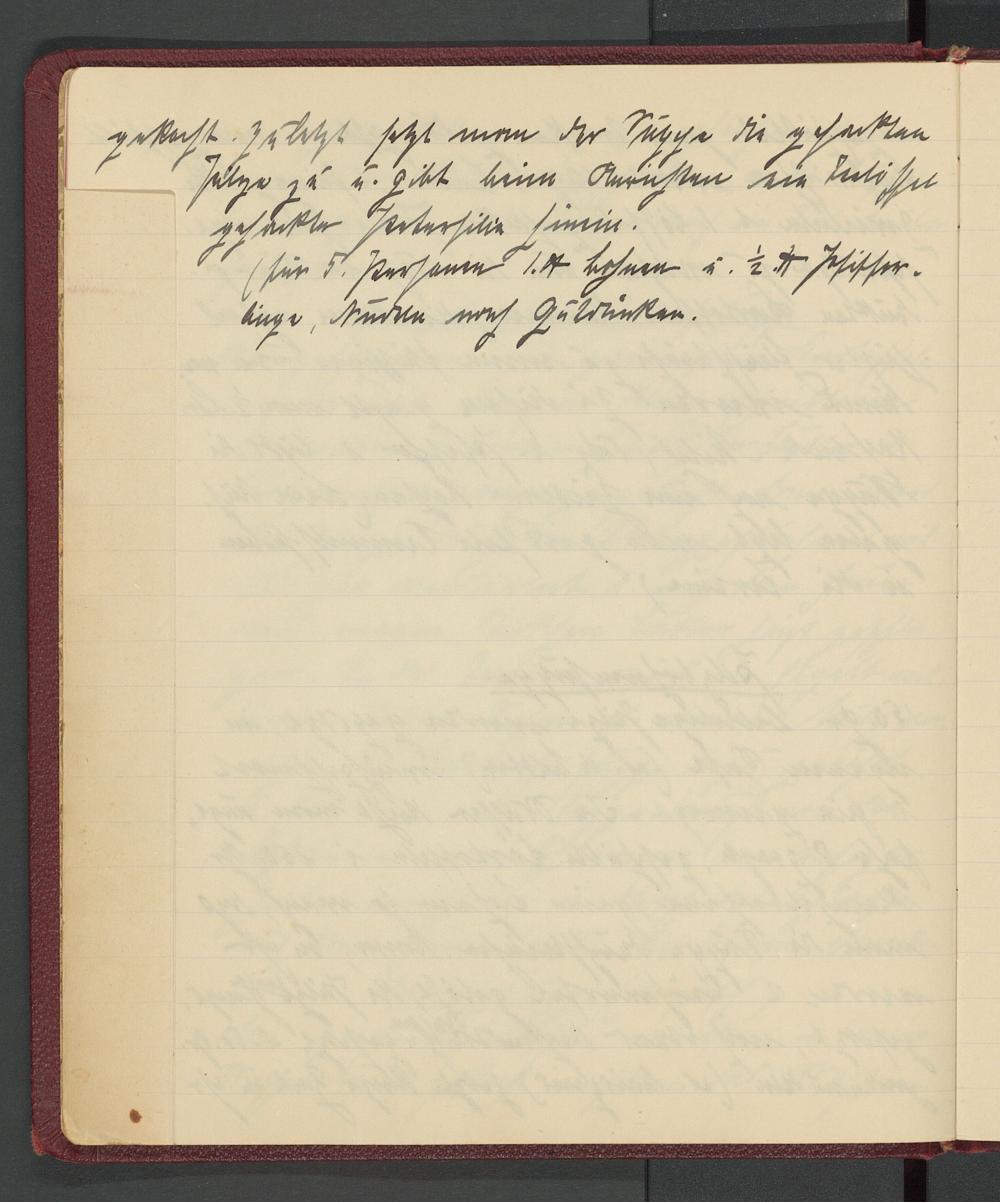 gekocht. Zuletzt setzt man der Suppe die gehackten
Pilze zu u. gibt beim Anrichten ein Teelöffel
gehackte Petersilie hinein.
(für 5. Personen 1. ℔ Bohnen u. ½ ℔ Pfiffer-
linge, Nudeln nach Gutdünken.